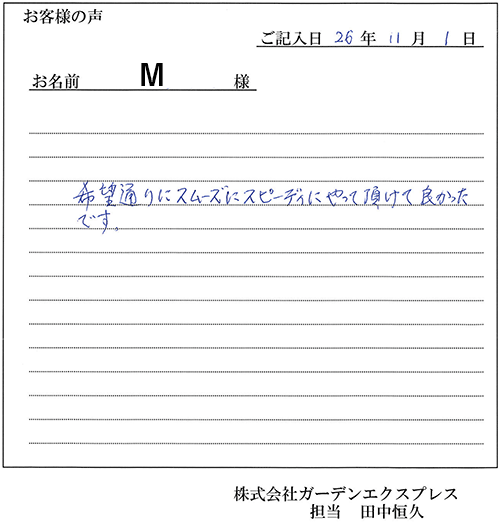 お客様の声
ご記入日 26年 11月 1日
お名前 M 様
希望通りにスムーズにスピーディにやって頂けて良かった
です。
株式会社ガーデンエクスプレス
担当 田中恒久